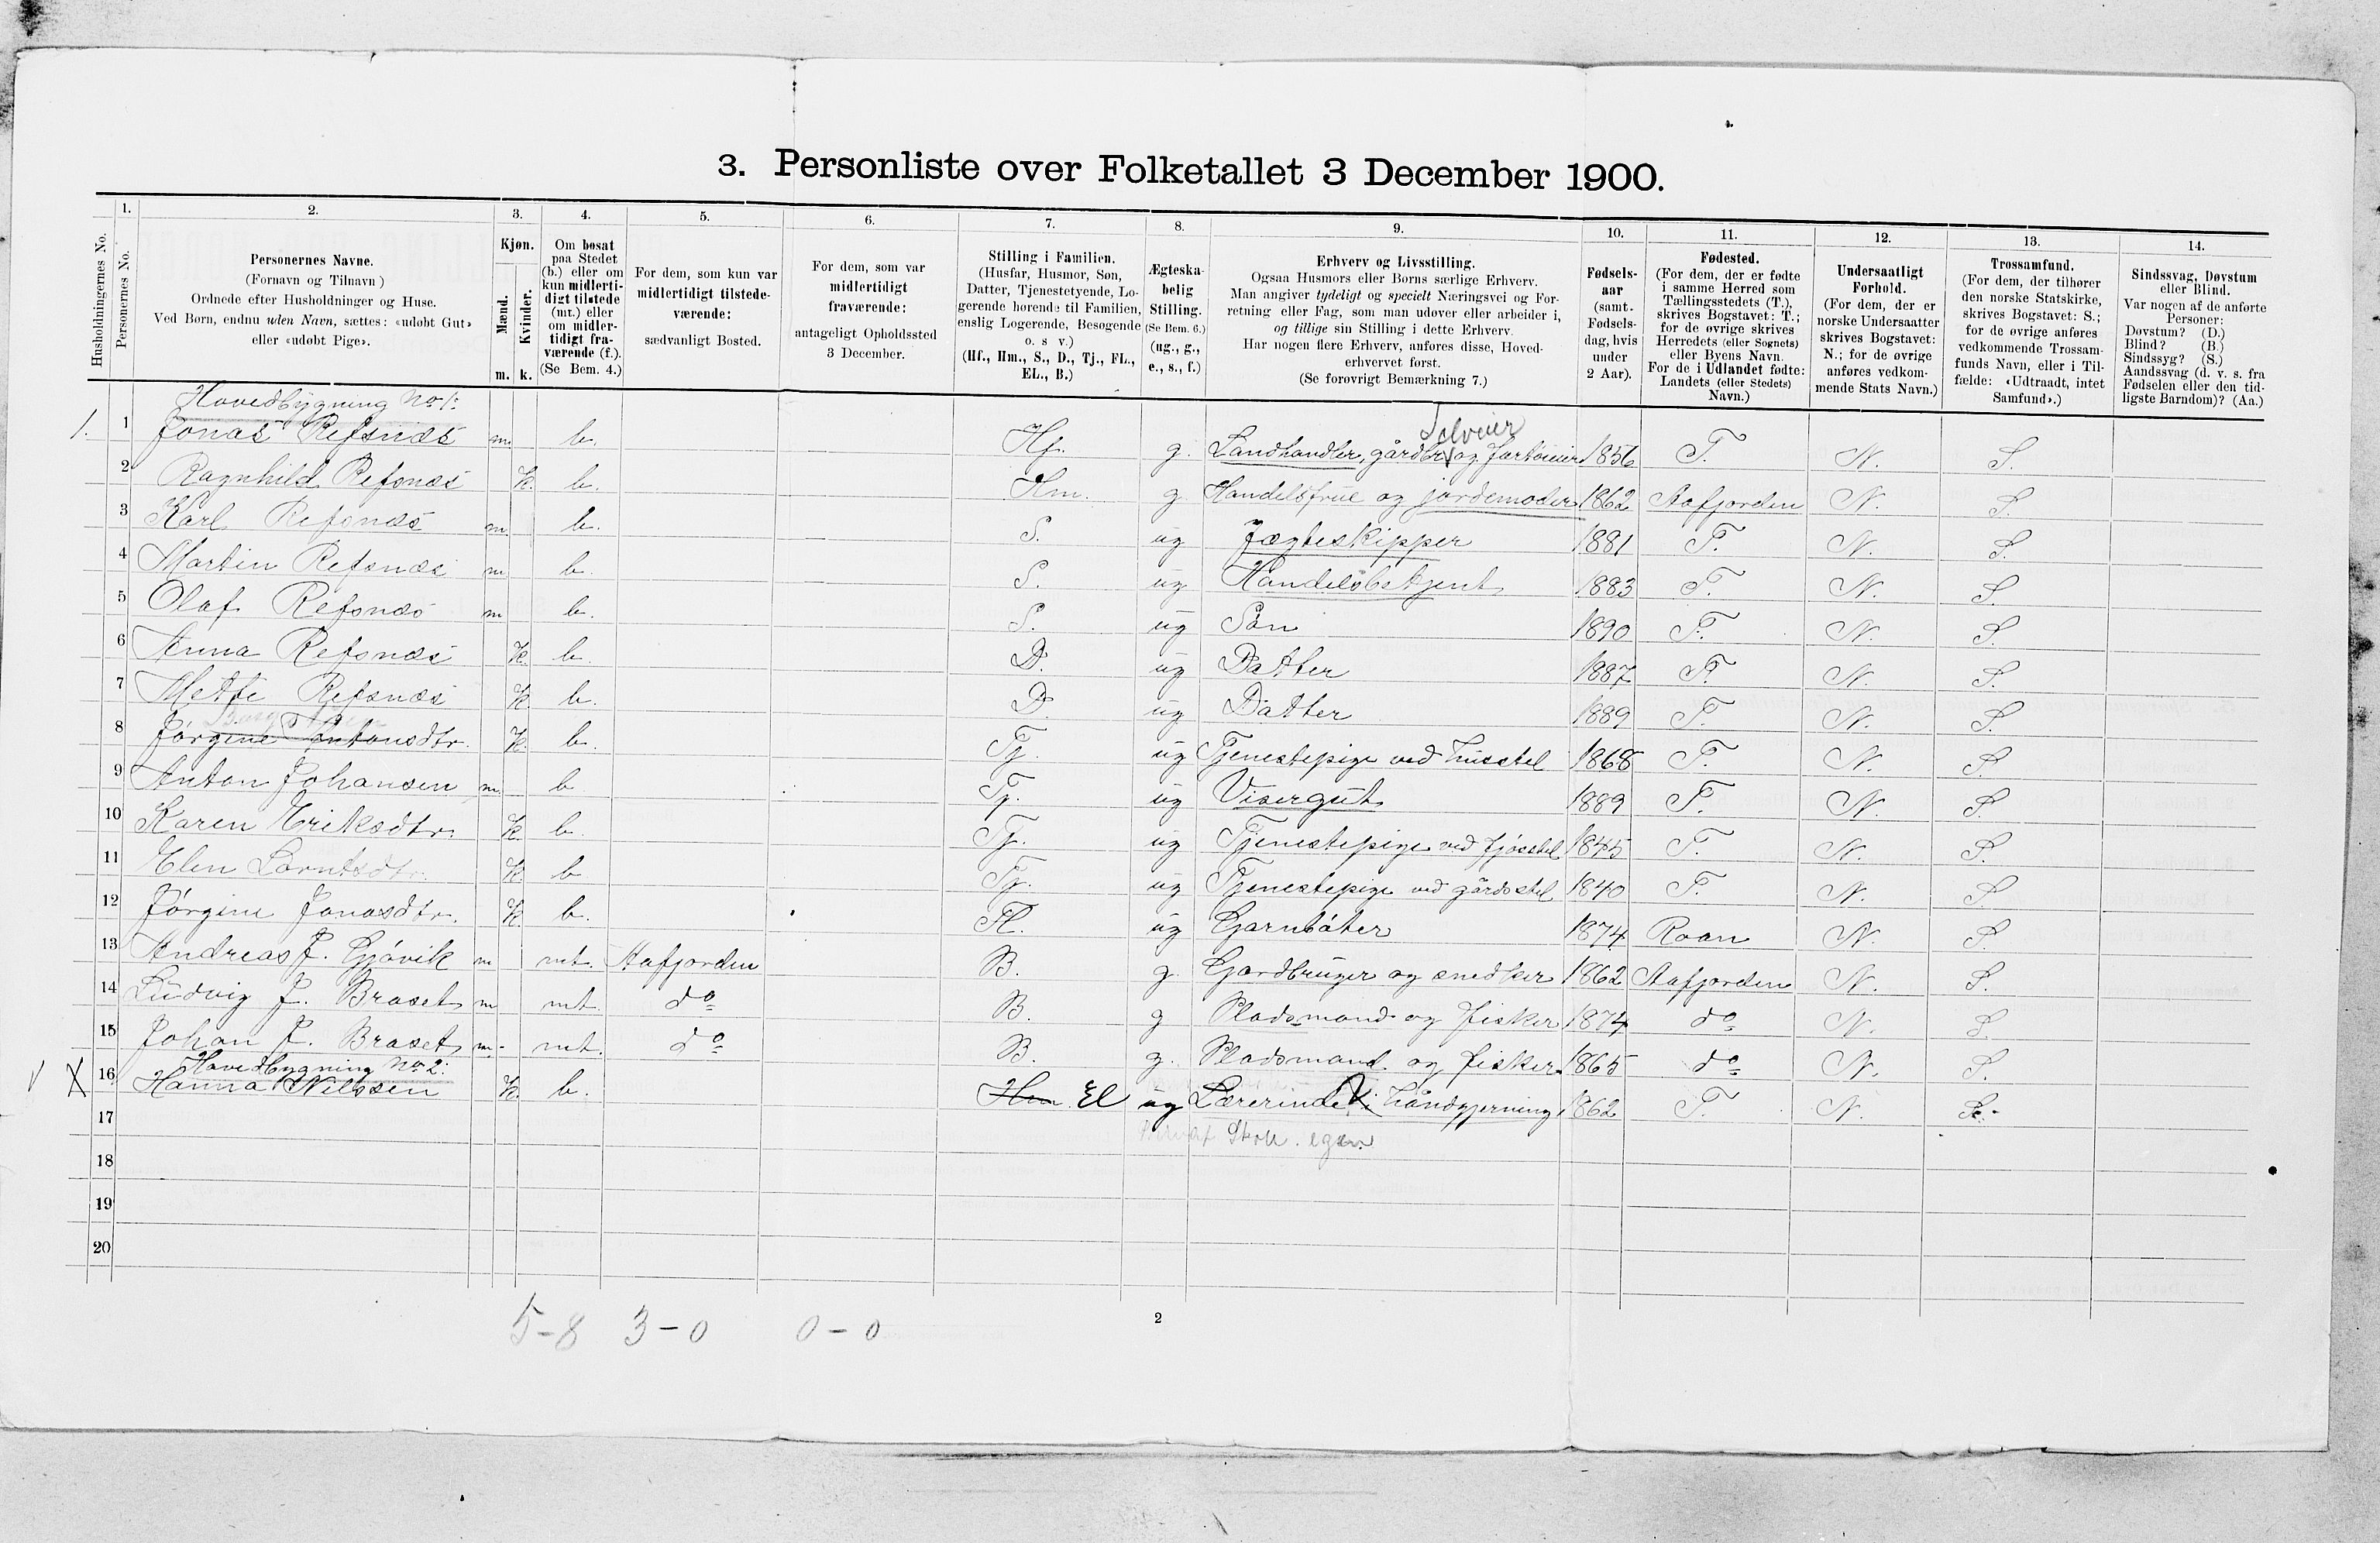 3. Personliste over Folketallet 3 December 1900.
1. 2. 3. 4. 5. 6. 7. 8. 9. 10. 11. 12. 13. 14.
Husholdningernes No.
Personernes No.
Personernes Navne.
(Fornavn og Tilnavn)
Ordnede efter Husholdninger og Huse.
Ved Børn, endnu uden Navn, sættes: «udøbt Gut»
eller «udøbt Pige».
Kjøn.
Mænd.
Kvinder.
m. k.
Om bosat
paa Stedet
(b.) eller om
kun midlerti-
digt tilstede
(mt.) eller
om midler-
tidigt fra-
værende (f.).
(Se Bem. 4.)
For dem, som kun var
midlertidigt tilstede-
værende:
sædvanligt Bosted.
For dem, som var
midlertidigt
fraværende:
antageligt Opholdssted
3 December.
Stilling i Familien.
(Husfar, Husmor, Søn,
Datter, Tjenestetyende, Lo-
gerende hørende til Familien,
enslig Logerende, Besøgende
o. s v.)
(Hf., Hm., S., D., Tj., FL.,
EL., B.)
Ægteska-
belig
Stilling.
(Se Bem. 6.)
(ug., g.,
e., s., f.)
Erhverv og Livsstilling.
Ogsaa Husmors eller Børns særlige Erhverv.
Man angiver tydeligt og specielt Næringsvei og For-
retning eller Fag, som man udøver eller arbeider i,
og tillige sin Stilling i dette Erhverv.
Har nogen flere Erhverv, anføres disse, Hoved-
erhvervet først.
(Se forøvrigt Bemærkning 7.)
Fødsels-
aar
(samt.
Fødsels-
dag, hvis
under
2 Aar).
Fødested.
(For dem, der er fødte
i samme Herred som
Tællingsstedets (T.),
skrives Bogstavet: T.;
for de øvrige skrives
Herredets (eller Sognets)
eller Byens Navn.
For de i Udlandet fødte:
Landets (eller Stedets)
Navn.)
Undersaatligt
Forhold.
(For dem, der er
norske Undersaatter
skrives Bogstavet:
N.; for de øvrige
anføres vedkom-
mende Stats Navn.)
Trossamfund.
(For dem, der tilhører
den norske Statskirke,
skrives Bogstavet: S.;
for de øvrige anføres
vedkommende Trossam-
funds Navn, eller i Til-
fælde: «Udtraadt, intet
Samfund».)
Sindssvag, Døvstum
eller Blind.
Var nogen af de anførte
Personer:
Døvstum? (D.)
Blind? (B.)
Sindssyg? (S.)
Aandssvag (d. v. s. fra
Fødselen eller den tid-
ligste Barndom)? (Aa.)
Hovedbygning No 1:
Selveier
1. 1 Jonas Refsnæs m. b. Hf. g. Landhandler, gårdbr. og fartøieier 1856 T. N. S.
2 Ragnhild Refsnæs k. b. Hm. g. Handelsfrue og jordemoder 1862 Aafjorden N. S.
3 Karl Refsnæs m. b. S. ug Jægteskipper 1881 T. N. S.
4 Martin Refsnæs m b. S. ug Handelsbetjent 1883 T. N. S.
5 Olaf Refsnæs m b. S. ug Søn 1890 T. N. S.
6 Anna Refsnæs k. b. D. ug Datter 1887 T. N. S.
7 Mette Refsnæs k. b. D. ug Datter 1889 T. N. S.
8 Jørgine Antonsdtr. k. b. Tj. ug Tjenestepige ved husstel 1868 T. N. S.
9 Anton Johansen m. b Tj. ug Visergut 1889 T. N. S.
10 Karen Eriksdtr. k. b. Tj. ug Tjenestepige ved fjøsstel 1845 T. N. S.
11 Elen Lorntsdtr. k. b Tj. ug Tjenestepige ved gårdsstel 1840 T. N. S.
12 Jørgine Jonasdtr. k. b. Fl. ug Garnbøter 1874 Roan N. S.
13 Andreas J. Gjøvik m mt. Aafjorden B. g. Gardbruger og snedker 1862 Aafjorden N. S.
14 Ludvig J. Braset m mt do B. g Pladsmand og fisker 1874 do N. S.
15 Johan J. Braset m. mt. do B. g. Pladsmand og fisker 1865 do N. S.
Hovedbygning No 2:
16 Hanna Nilssen k. b. Hm. El ug Lærerinde i håndgjerning 1862 T. N. S.
17 privat Skole. egen
18
19
20
5-8 3-0 0-0
2